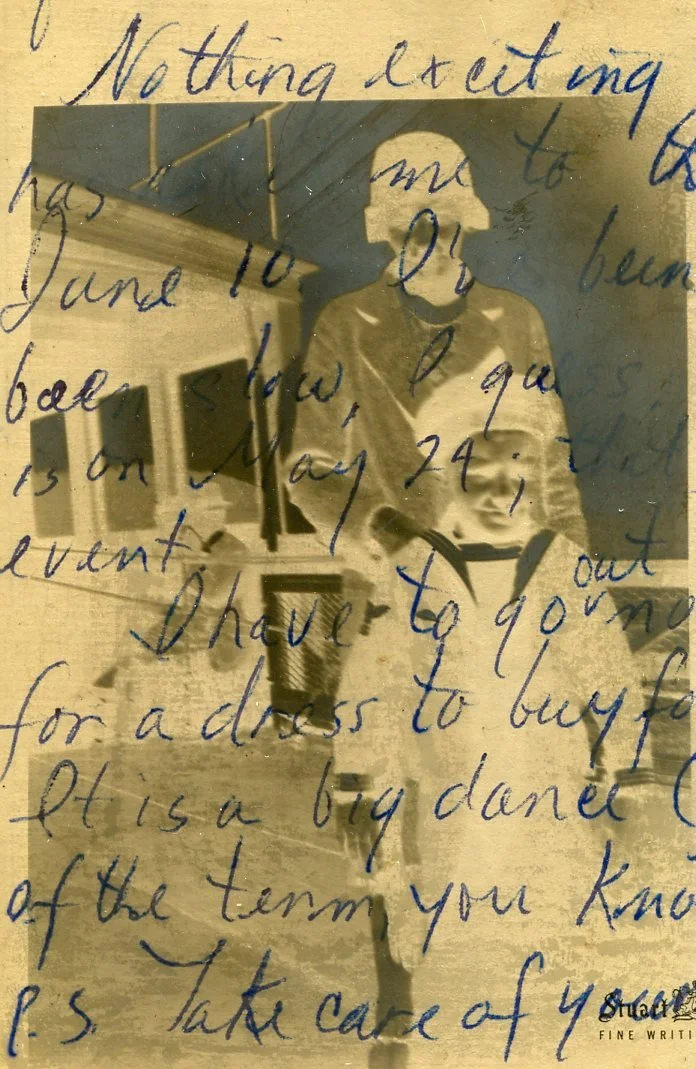 Nothing exciting
has me to th
June 10. been
been slow, I guess
is on May 24; this
event.
I have to go out no
for a dress to buy fo
It is a big dance (
of the term, you Kno
P.S. Take care of your
Stuart
FINE WRITI